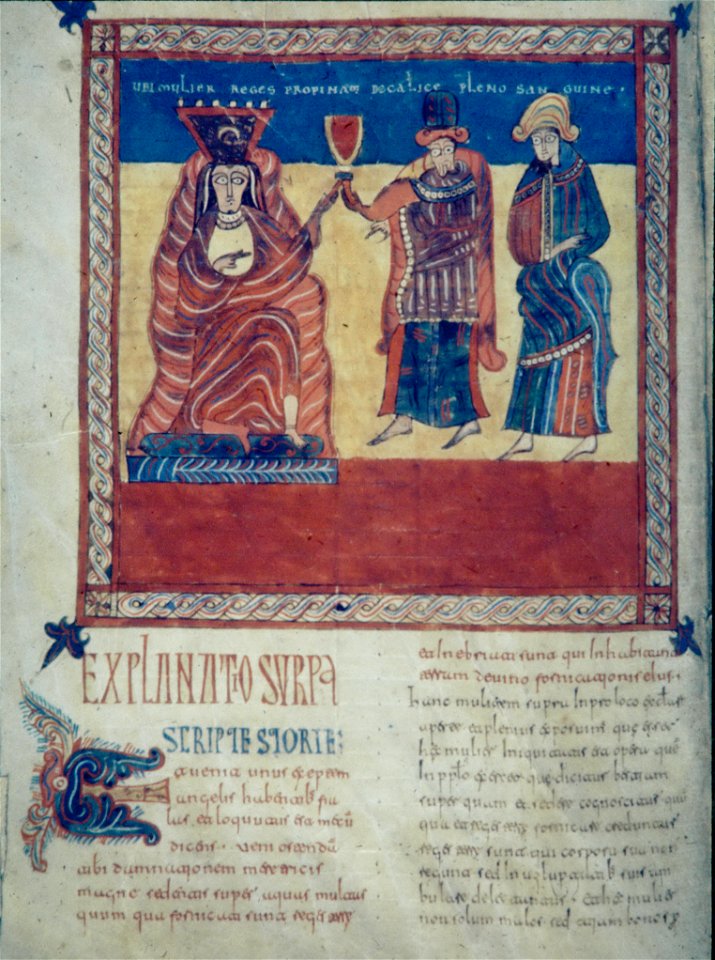 UBI MULIER REGES PROPINAT DE CALICE PLENO SAN GUINE·
EXPLANATIO SVRPA
SCRIPTE STORIE:
Et uenit unus ex septem
angelis habentib; fia
las, et loquutus est mecū
dicens · Veni ostendā
tibi damnationem meretricis
magne sedentis super aquas multas
quum qua fornicati sunt reges terre
et inebriati sunt qui inhabitant
terram de uino fornicationis eius ·
Hanc mulierem supra in
aperte et plenius exposuim; que esset
hec mulier iniquitatis est opera que
in pplo que dicitur bestiam
super quam et sedere cognoscitur cū
qua et reges terre fornicare creduntur
reges terre sunt qui corpora sua
regunt sed in uoluptatib; suis am
bulare delectantur · et hec mulier
non solum malos sed etiam bonos